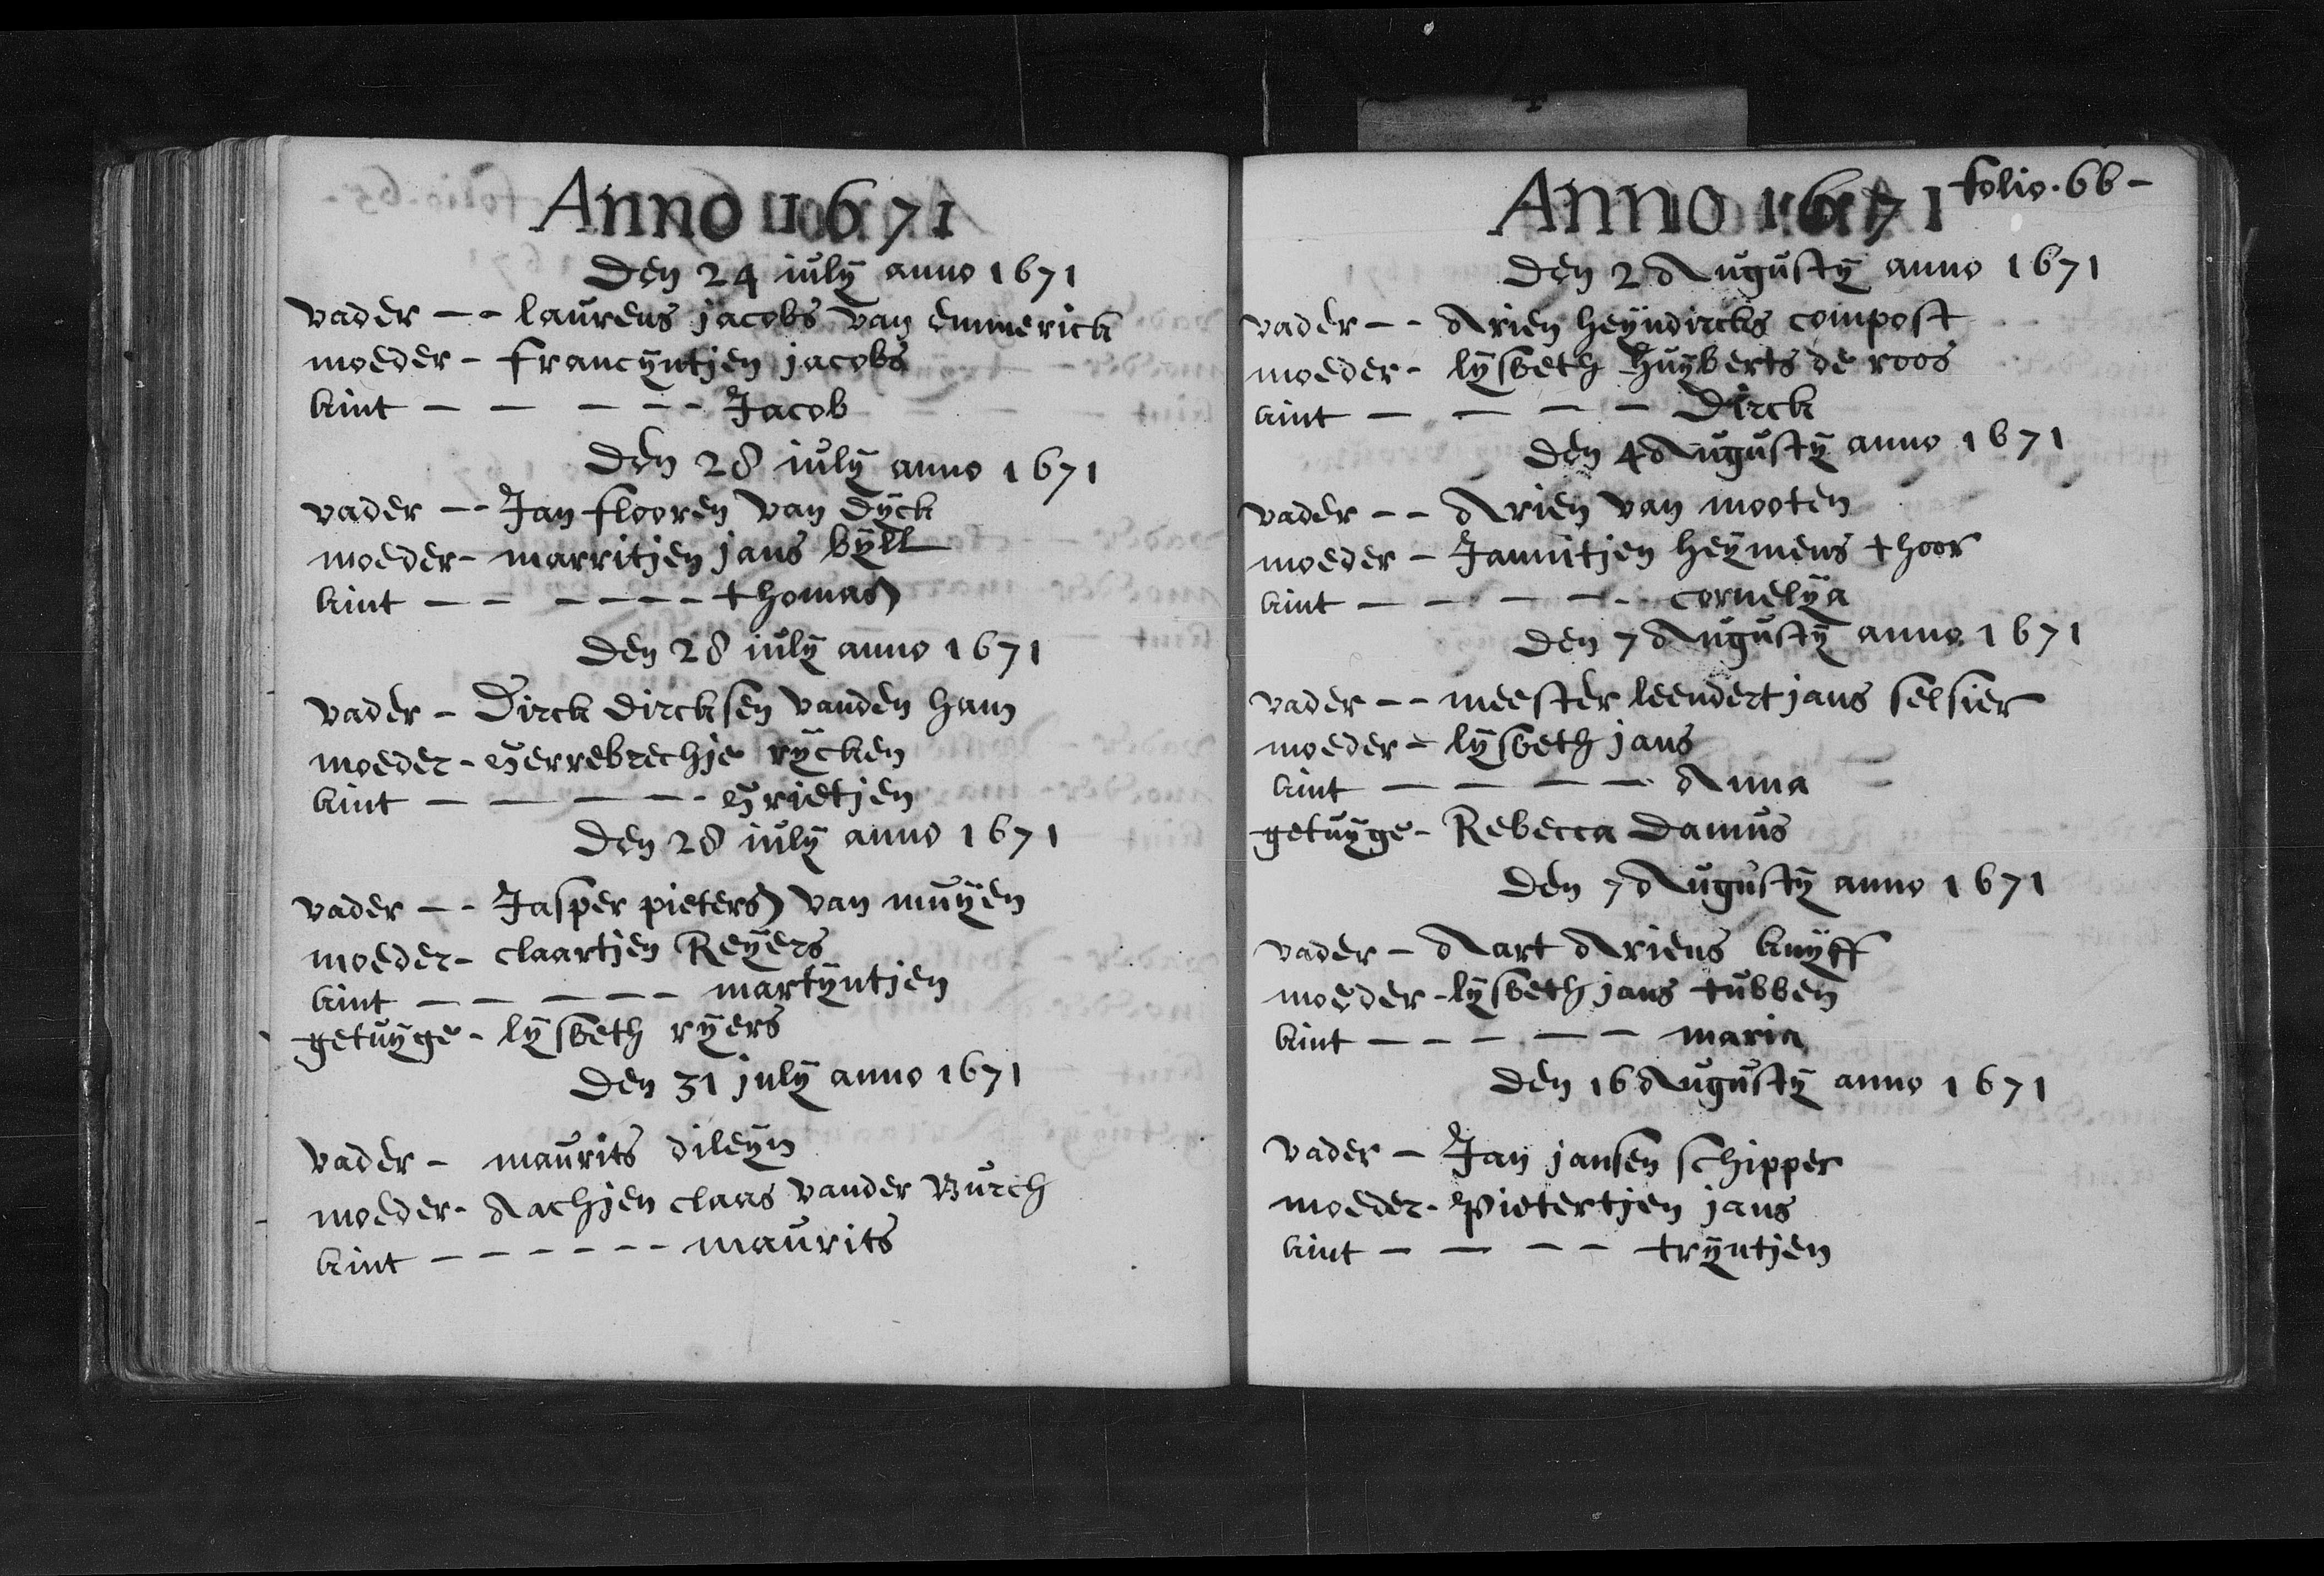 Anno 1671
Den 24 iuly anno 1671
vader -- laurens jacobs van emmerick
moeder - francyntjen jacobs
kint - - - - - Jacob
Den 28 iuly anno 1671
vader -- Jan flooren van Dyck
moeder - marritjen jans byll
kint - - - - - - thomas
Den 28 iuly anno 1671
vader - Dirck Dircksen vanden ham
moeder - Gerrebrechje rycken
kint - - - - - - Grietjen
Den 28 iuly anno 1671
vader -- Jasper pieters van muyen
moeder - claartjen Reyers
kint - - - - - martyntjen
getuyge - lysbeth ryers
Den 31 july anno 1671
vader - maurits dileyn
moeder - Aachjen claas vander Burch
kint - - - - - - maurits
folio. 66 -
Anno 1671
Den 2 Augusty anno 1671
vader -- Arien heyndircks compost
moeder - lysbeth huyberts de roos
kint - - - - - Dirck
Den 4 Augusty anno 1671
vader -- Arien van mooten
moeder - Jannitjen heymens thoor
kint - - - - - - cornelya
Den 7 Augusty anno 1671
vader -- meester leendert jans selsier
moeder - lysbeth jans
kint - - - - - Anna
getuyge - Rebecca Damus
Den 7 Augusty anno 1671
vader - Aart Ariens knyff
moeder - lysbeth jans tubben
kint - - - - - maria
Den 16 Augusty anno 1671
vader - Jan jansen schipper
moeder - Pietertjen jans
kint - - - - tryntjen